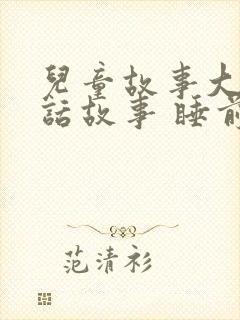 兒童故事大
話故事 睡前
范清衫